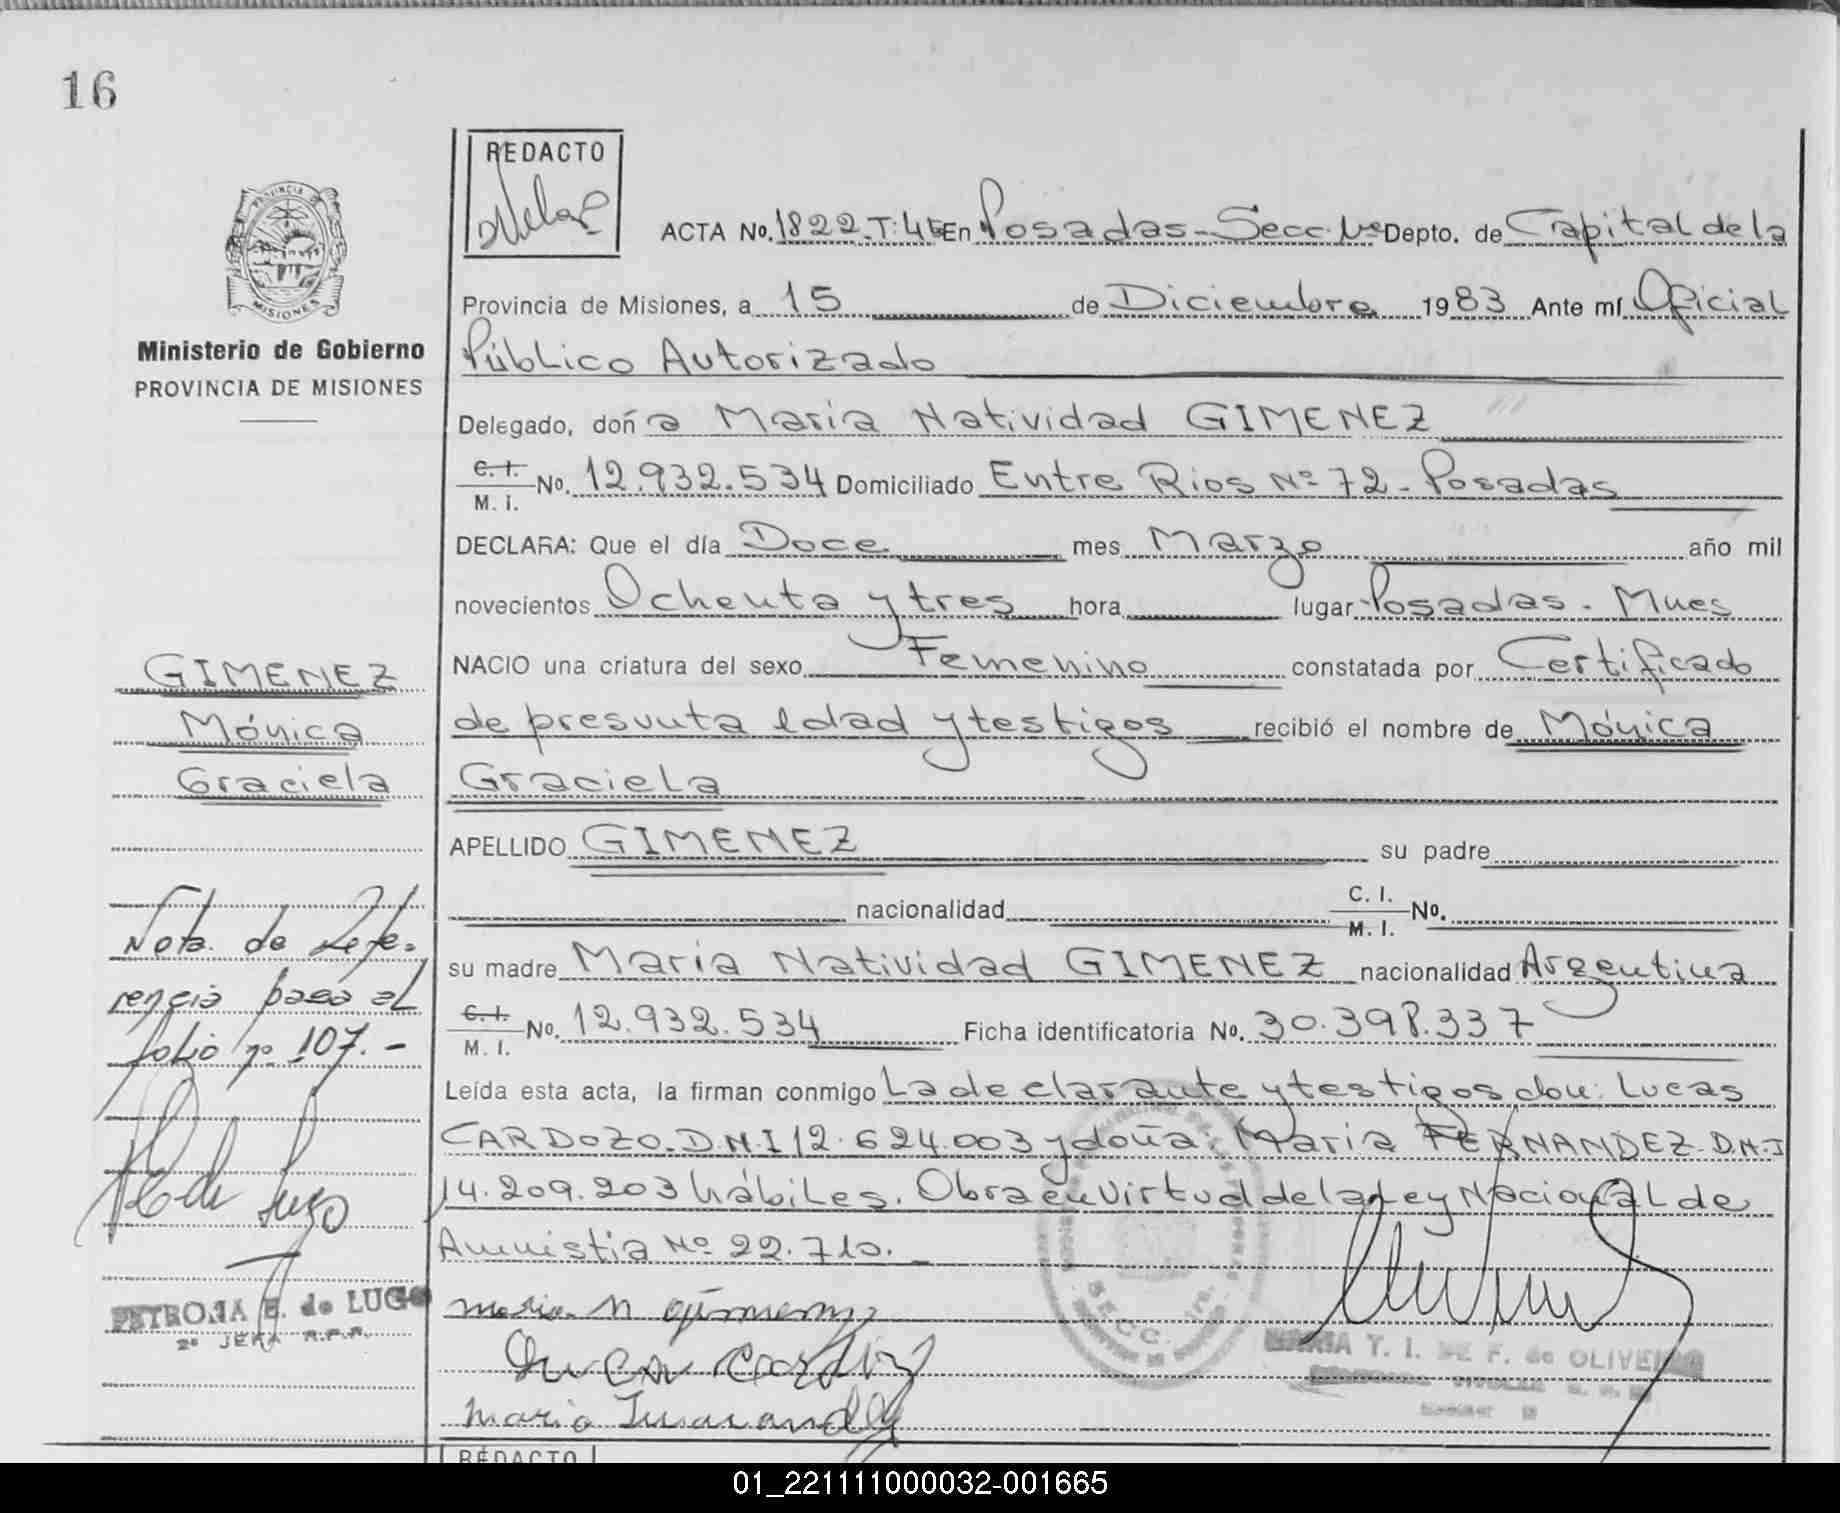 16
REDACTO
PROVINCIA
MISIONES
ACTA No. 1822. T: 4 En Posadas - Secc. Depto. de Capital de la
Provincia de Misiones, a 15 de Diciembre 1983 Ante mí Oficial
Ministerio de Gobierno
PROVINCIA DE MISIONES
Público Autorizado
Delegado, doña María Natividad GIMENEZ
C. I. M. I. No. 12.932.534 Domiciliado Entre Rios Nº 72 - Posadas
DECLARA: Que el día Doce mes Marzo año mil
novecientos Ochenta y tres hora lugar Posadas - Mnes
NACIO una criatura del sexo Femenino constatada por Certificado
de presunta edad y testigos recibió el nombre de Mónica
Graciela
APELLIDO GIMENEZ su padre
nacionalidad C. I. M. I. No.
su madre María Natividad GIMENEZ nacionalidad Argentina
C. I. M. I. No. 12.932.534 Ficha identificatoria No. 30.398.337
Leída esta acta, la firman conmigo La declarante y testigos don: Lucas
CARDOZO. D.N.I 12.624.003 y doña María FERNANDEZ. D.N.I
14.209.203 hábiles. Obra en virtud de la Ley Nacional de
Amnistia Nº 22.710.
GIMENEZ
Mónica
Graciela
Nota de refe-
rencia pasa al
folio nº 107.-
PETRONA E. de LUGO
2º JEFA R.P.P.
maria n gimenez
Lucas Cardozo
maria Fernandez
MARIA T. I. DE F. de OLIVEIRA
REDACTO
01_221111000032-001665